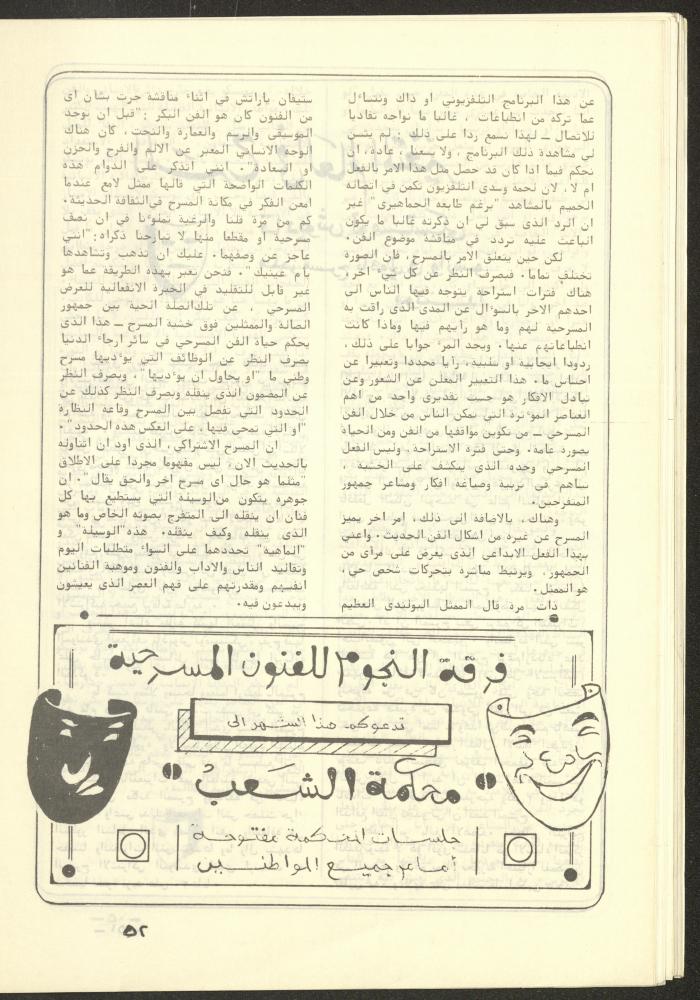 عن هذا البرنامج التلفزيوني او ذاك ونتسائل
عما تركه من انطباعات ، غالبا ما نواجه تفاديا
للاتصال ــ لهذا نسمع ردا على ذلك : لم يتسن
لي مشاهدة ذلك البرنامج ، ولا يسعنا ، عادة، ان
نحكم فيما اذا كان قد حصل مثل هذا الامر بالفعل
ام لا ، لان لحمة وسدى التلفزيون تكمن في اتصاله
الحميم بالمشاهد "برغم طابعه الجماهيرى" غير
ان الرد الذى سبق لي ان ذكرته غالبا ما يكون
الباعث عليه تردد في مناقشة موضوع الفن.
لكن حين يتعلق الامر بالمسرح ، فان الصورة
تختلف تماما. فبصرف النظر عن كل شيء آخر،
هناك فترات استراحة يتوجه فيها الناس الى
احدهم الاخر بالسوءال عن المدى الذى راقت به
المسرحية لهم وما هو رأيهم فيها وماذا كانت
انطباعاتهم عنها. ويجد المرء جوابا على ذلك ،
ردودا ايجابية او سلبية، رأيا محددا وتعبيرا عن
احساس ما. هذا التعبير المعلن عن الشعور وعن
تبادل الافكار هو حسب تقديرى واحد من اهم
العناصر الموءثرة التي تمكن الناس من خلال الفن
المسرحي ــ من تكوين مواقفها من الفن ومن الحياة
بصورة عامة. وحتى فترة الاستراحة، وليس الفعل
المسرحي وحده الذى ينكشف على الخشبة ،
تساهم في تربية وصياغة افكار ومشاعر جمهور
المتفرجين.
وهناك ، بالاضافة الى ذلك ، امر اخر يميز
المسرح عن غيره من اشكال الفن الحديث. واعني
بهذا الفعل الابداعي الذى يعرض على مرأى من
الجمهور، ويرتبط مباشرة بتحركات شخص حي ،
هو الممثل.
ذات مرة قال الممثل البولندى العظيم
ستيفان ياراتش في اثناء مناقشة جرت بشان اى
من الفنون كان هو الفن البكر : "قبل ان توجد
الموسيقى والرسم والعمارة والنحت، كان هناك
الوجه الانساني المعبر عن الالم والفرح والحزن
او السعادة". انني اتذكر على الدوام هذه
الكلمات الواضحة التي قالها ممثل لامع عندما
امعن الفكر في مكانة المسرح في الثقافة الحديثة.
كم من مرة قلنا والرغبة تملوءنا في ان نصف
مسرحية او مقطعا منها لا تبارحنا ذكراه: "انني
عاجز عن وصفهما. عليك ان تذهب وتشاهدها
بأم عينيك". فنحن نعبر بهذه الطريقة عما هو
غير قابل للتقليد في الخبرة الانفعالية للعرض
المسرحي ، عن تلك الصلة الحية بين جمهور
الصالة والممثلين فوق خشبة المسرح ــ هذا الذى
يحكم حياة الفن المسرحي في سائر ارجاء الدنيا
بصرف النظر عن الوظائف التي يوءديها مسرح
وطني ما "او يحاول ان يوءديها"، وبصرف النظر
عن المضمون الذى ينقله وبصرف النظر كذلك عن
الحدود التي تفصل بين المسرح وقاعة النظارة
"او التي تمحى فيها ، على العكس هذه الحدود".
ان المسرح الاشتراكي ، الذى اود ان اتناوله
بالحديث الان، ليس مفهوما مجردا على الاطلاق
"مثلما هو حال اى مسرح اخر والحق يقال". ان
جوهره يتكون من الوسيلة التي يستطيع بها كل
فنان ان ينقله الى المتفرج بصوته الخاص وما هو
الذى ينقله وكيف ينقله. هذه "الوسيلة" و
"الماهية" تحددهما على السواء متطلبات اليوم
وتقاليد الناس والاداب والفنون وموهبة الفنانين
انفسهم ومقدرتهم على فهم العصر الذى يعيشون
ويبدعون فيه.
فرقة النجوم للفنون المسرحية
تدعوكم هذا الشهر الى
" محكمة الشعب "
جلسات المحكمة مفتوحة
أمام جميع المواطنين
٥٢